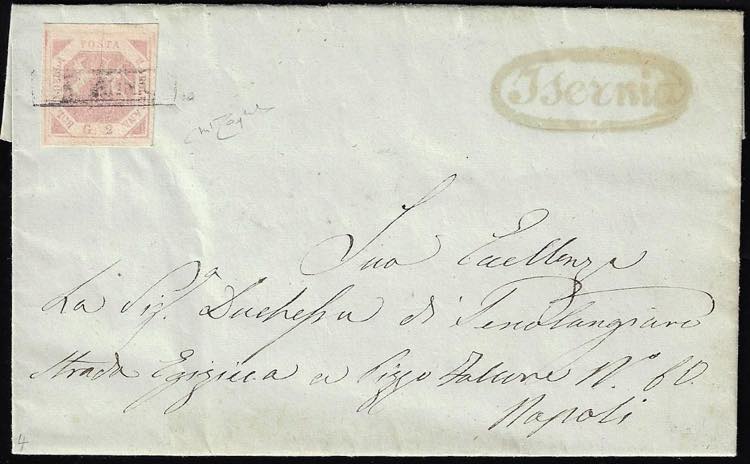 POSTA
NAPOLETANA
G. 2
ANNULLATO
Isernia
Sua Eccellenza
La Sig.ª Duchessa di
Strada Egiziaca a Pizzo Falcone N.º 60.
Napoli
4